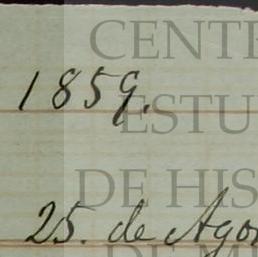 CENTR
1859.
ESTU
DE HIS
25. de Agos
DE MÉ